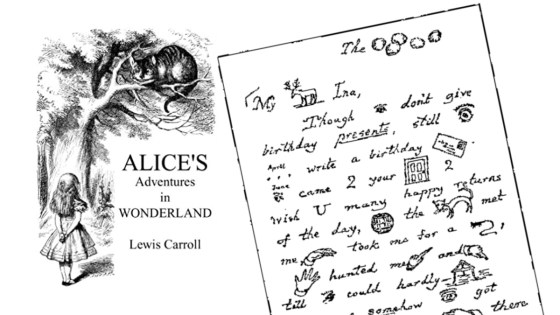 ALICE'S
Adventures
in
WONDERLAND
Lewis Carroll
The
My Ina,
Though don't give
birthday presents, still
April write a birthday
June came 2 your 2
wish U many happy returns
of the day, the met
me, took me for a ,
hunted me and
till could hardly
somehow got
there